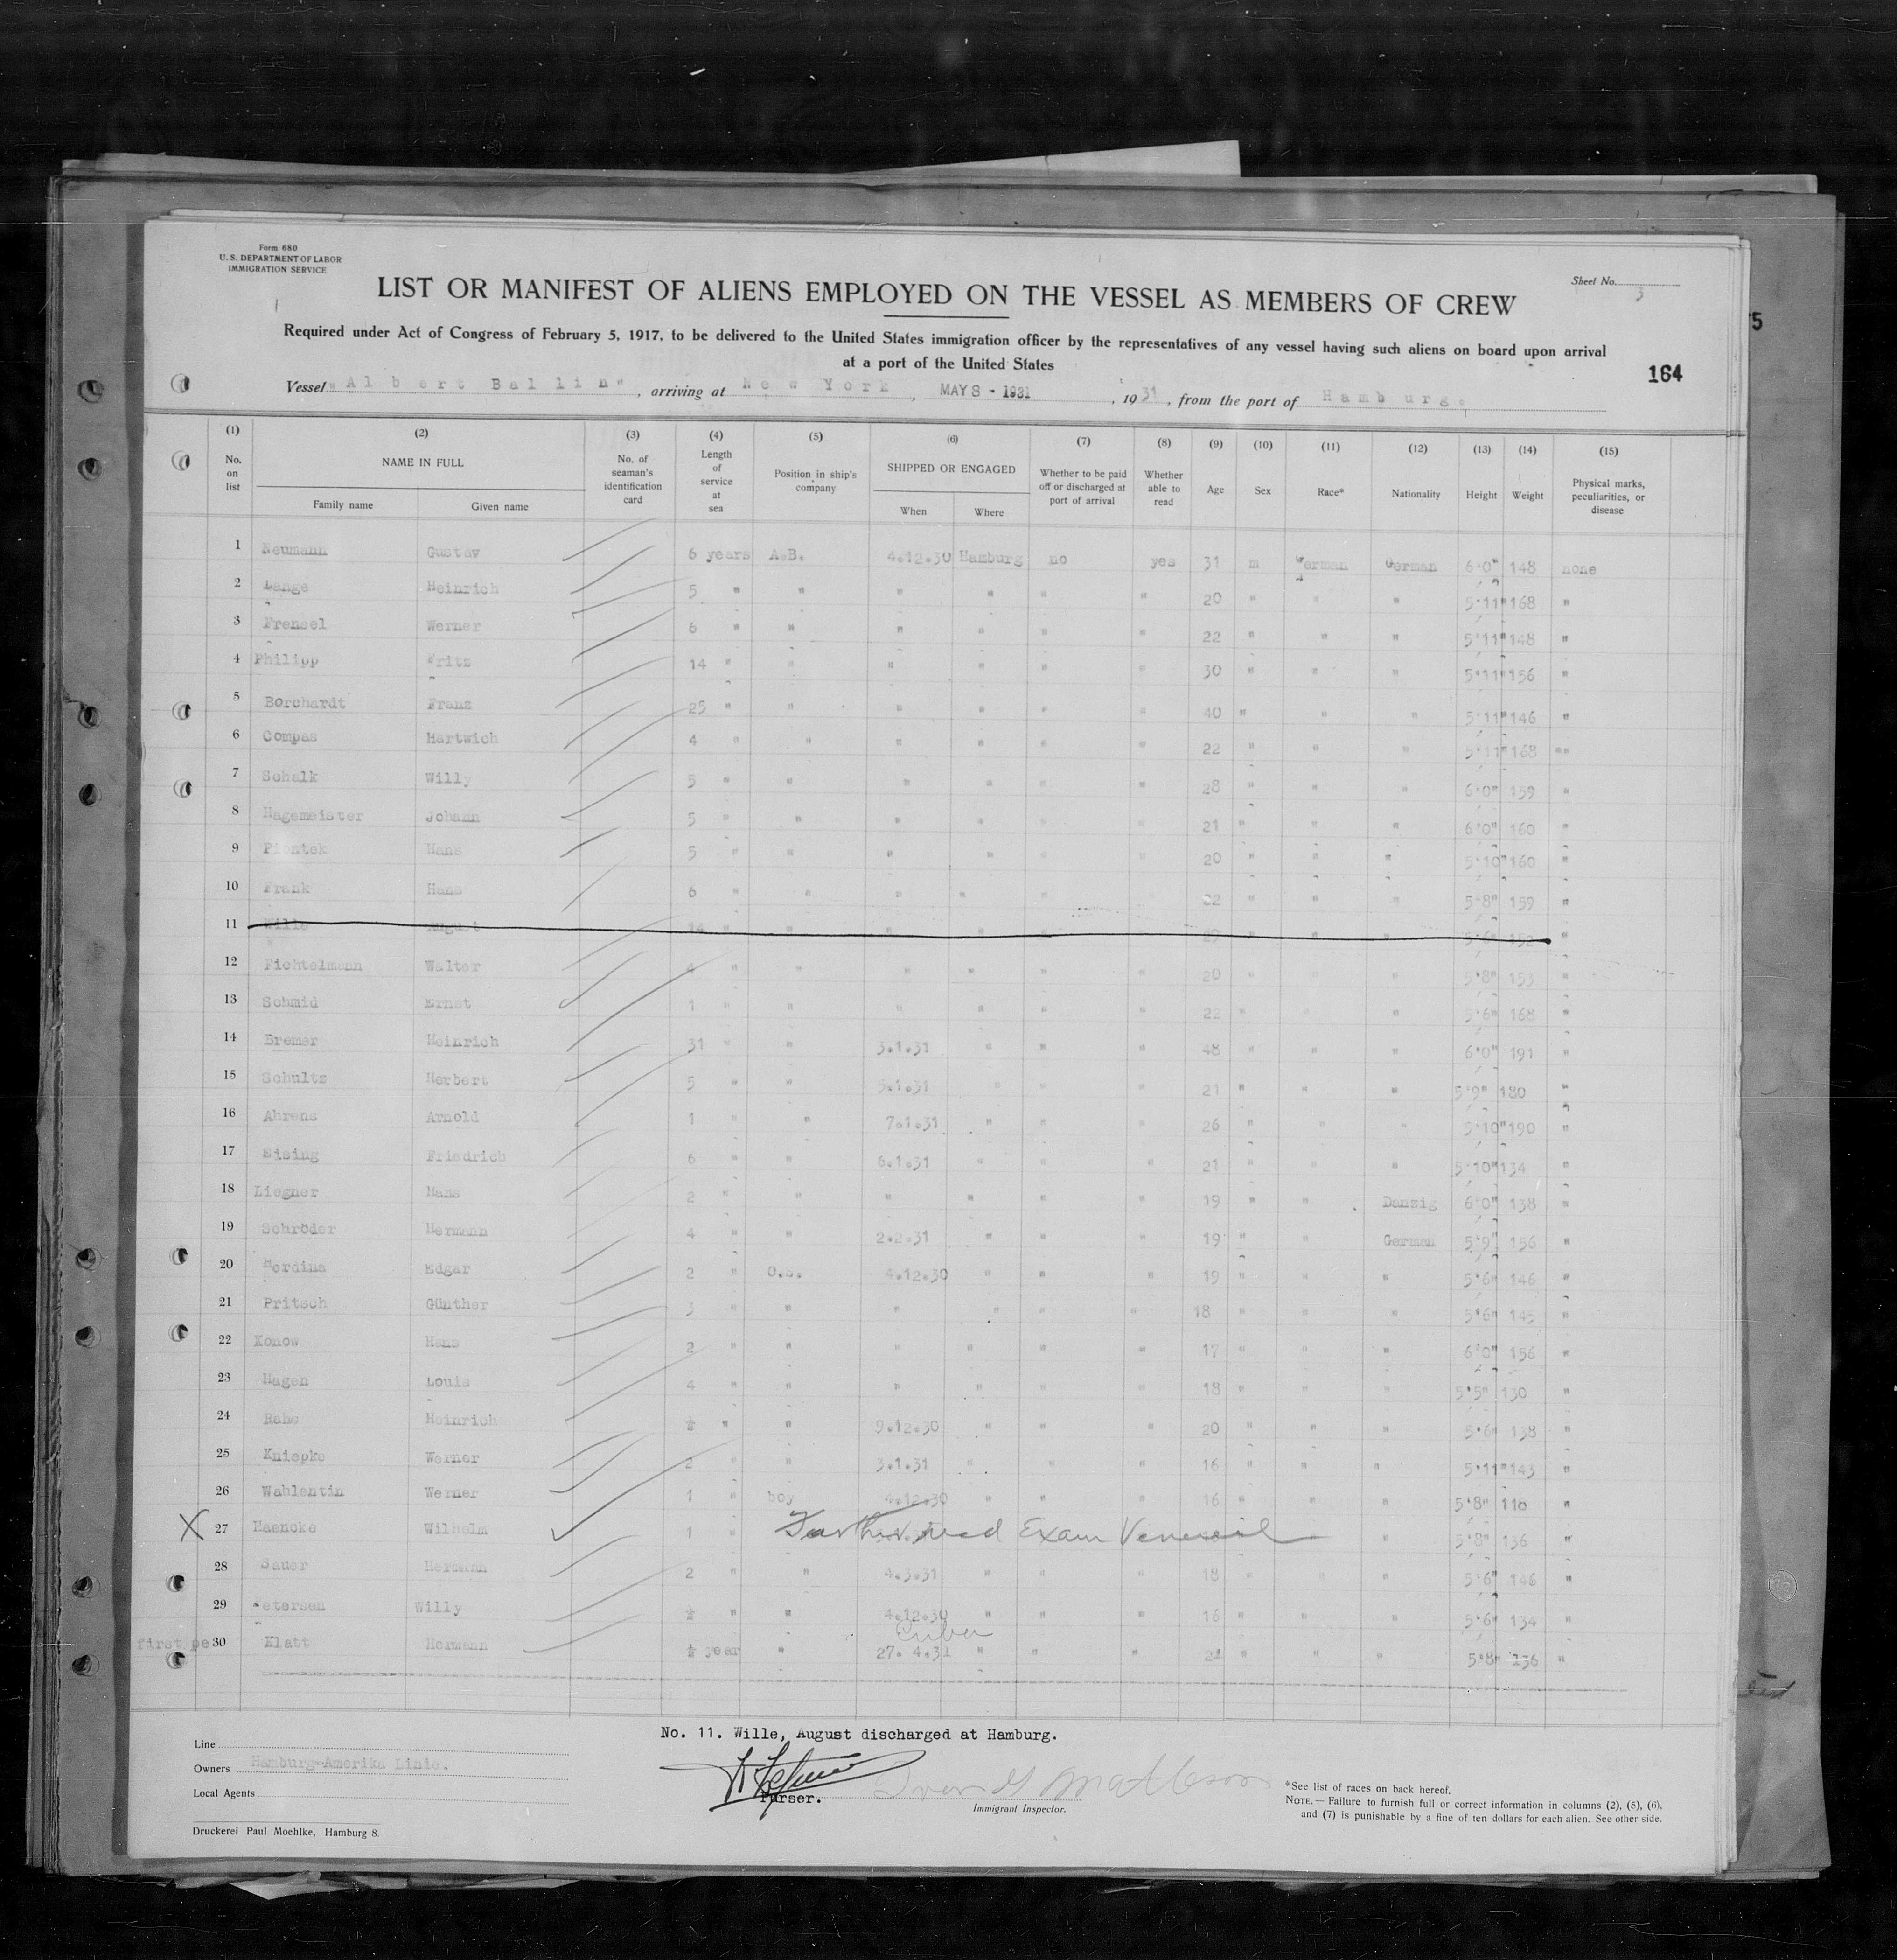 Form 680
U. S. DEPARTMENT OF LABOR
IMMIGRATION SERVICE
Sheet No. 3
LIST OR MANIFEST OF ALIENS EMPLOYED ON THE VESSEL AS MEMBERS OF CREW
Required under Act of Congress of February 5, 1917, to be delivered to the United States immigration officer by the representatives of any vessel having such aliens on board upon arrival
at a port of the United States
164
Vessel "Albert Ballin", arriving at New York, MAY 8 - 1931, 1931, from the port of Hamburg.
(1) (2) (3) (4) (5) (6) (7) (8) (9) (10) (11) (12) (13) (14) (15)
No. on list
NAME IN FULL
Family name Given name
No. of seaman's identification card
Length of service at sea
Position in ship's company
SHIPPED OR ENGAGED
When Where
Whether to be paid off or discharged at port of arrival
Whether able to read
Age Sex Race* Nationality Height Weight
Physical marks, peculiarities, or disease
1 Neumann Gustav 6 years A.B. 4.12.30 Hamburg no yes 31 m German German 6'0" 148 none
2 Lange Heinrich 5 " " " " " " 20 " " " 5'11" 168 "
3 Frensel Werner 6 " " " " " " 22 " " " 5'11" 148 "
4 Philipp Fritz 14 " " " " " " 30 " " " 5'11" 156 "
5 Borchardt Franz 25 " " " " " " 40 " " " 5'11" 146 "
6 Compas Hartwich 4 " " " " " " 22 " " " 5'11" 168 "
7 Schalk Willy 5 " " " " " " 28 " " " 6'0" 159 "
8 Hagemeister Johann 5 " " " " " " 21 " " " 6'0" 160 "
9 Piontek Hans 5 " " " " " " 20 " " " 5'10" 160 "
10 Frank Hans 6 " " " " " " " " " 5'8" 159 "
11 Wille August 14 " " " " " " 29 " " " 5'6" 152 "
12 Fichtelmann Walter 4 " " " " " " 20 " " " 5'8" 153 "
13 Schmid Ernst 1 " " " " " " 22 " " " 5'6" 168 "
14 Bremer Heinrich 31 " " 3.1.31 " " " 48 " " " 6'0" 191 "
15 Schultz Herbert 5 " " 5.1.31 " " " 21 " " " 5'9" 180 "
16 Ahrens Arnold 1 " " 7.1.31 " " " 26 " " " 5'10" 190 "
17 Eising Friedrich 6 " " 6.1.31 " " " 21 " " " 5'10" 134 "
18 Liegner Hans 2 " " " " " " 19 " " Danzig 6'0" 138 "
19 Schröder Hermann 4 " " 2.2.31 " " " 19 " " German 5'9" 156 "
20 Herdina Edgar 2 " O.S. 4.12.30 " " " 19 " " " 5'6" 146 "
21 Pritsch Günther 3 " " " " " " 18 " " " 5'6" 145 "
22 Konow Hans 2 " " " " " " 17 " " " 6'0" 156 "
23 Hagen Louis 4 " " " " " " 18 " " " 5'5" 130 "
24 Rabe Heinrich ½ " " 9.12.30 " " " 20 " " " 5'6" 138 "
25 Kniepke Werner 2 " " 3.1.31 " " " 16 " " " 5'11" 143 "
26 Wahlentin Werner 1 " boy 4.12.30 " " " 16 " " " 5'8" 118 "
X 27 Haencke Wilhelm 1 " Further med Exam Venereal " 5'8" 136 "
28 Sauer Hermann 2 " " 4.3.31 " " " 18 " " " 5'6" 146 "
29 Petersen Willy ½ " " 4.12.30 " " " 16 " " " 5'6" 134 "
Cuba
first pe 30 Klatt Hermann ½ year " 27. 4.31 " " " 21 " " " 5'8" 136 "
No. 11. Wille, August discharged at Hamburg.
Line
Owners Hamburg-Amerika Linie.
Local Agents
Purser.
Immigrant Inspector.
Druckerei Paul Moehlke, Hamburg 8.
*See list of races on back hereof.
NOTE.— Failure to furnish full or correct information in columns (2), (5), (6),
and (7) is punishable by a fine of ten dollars for each alien. See other side.